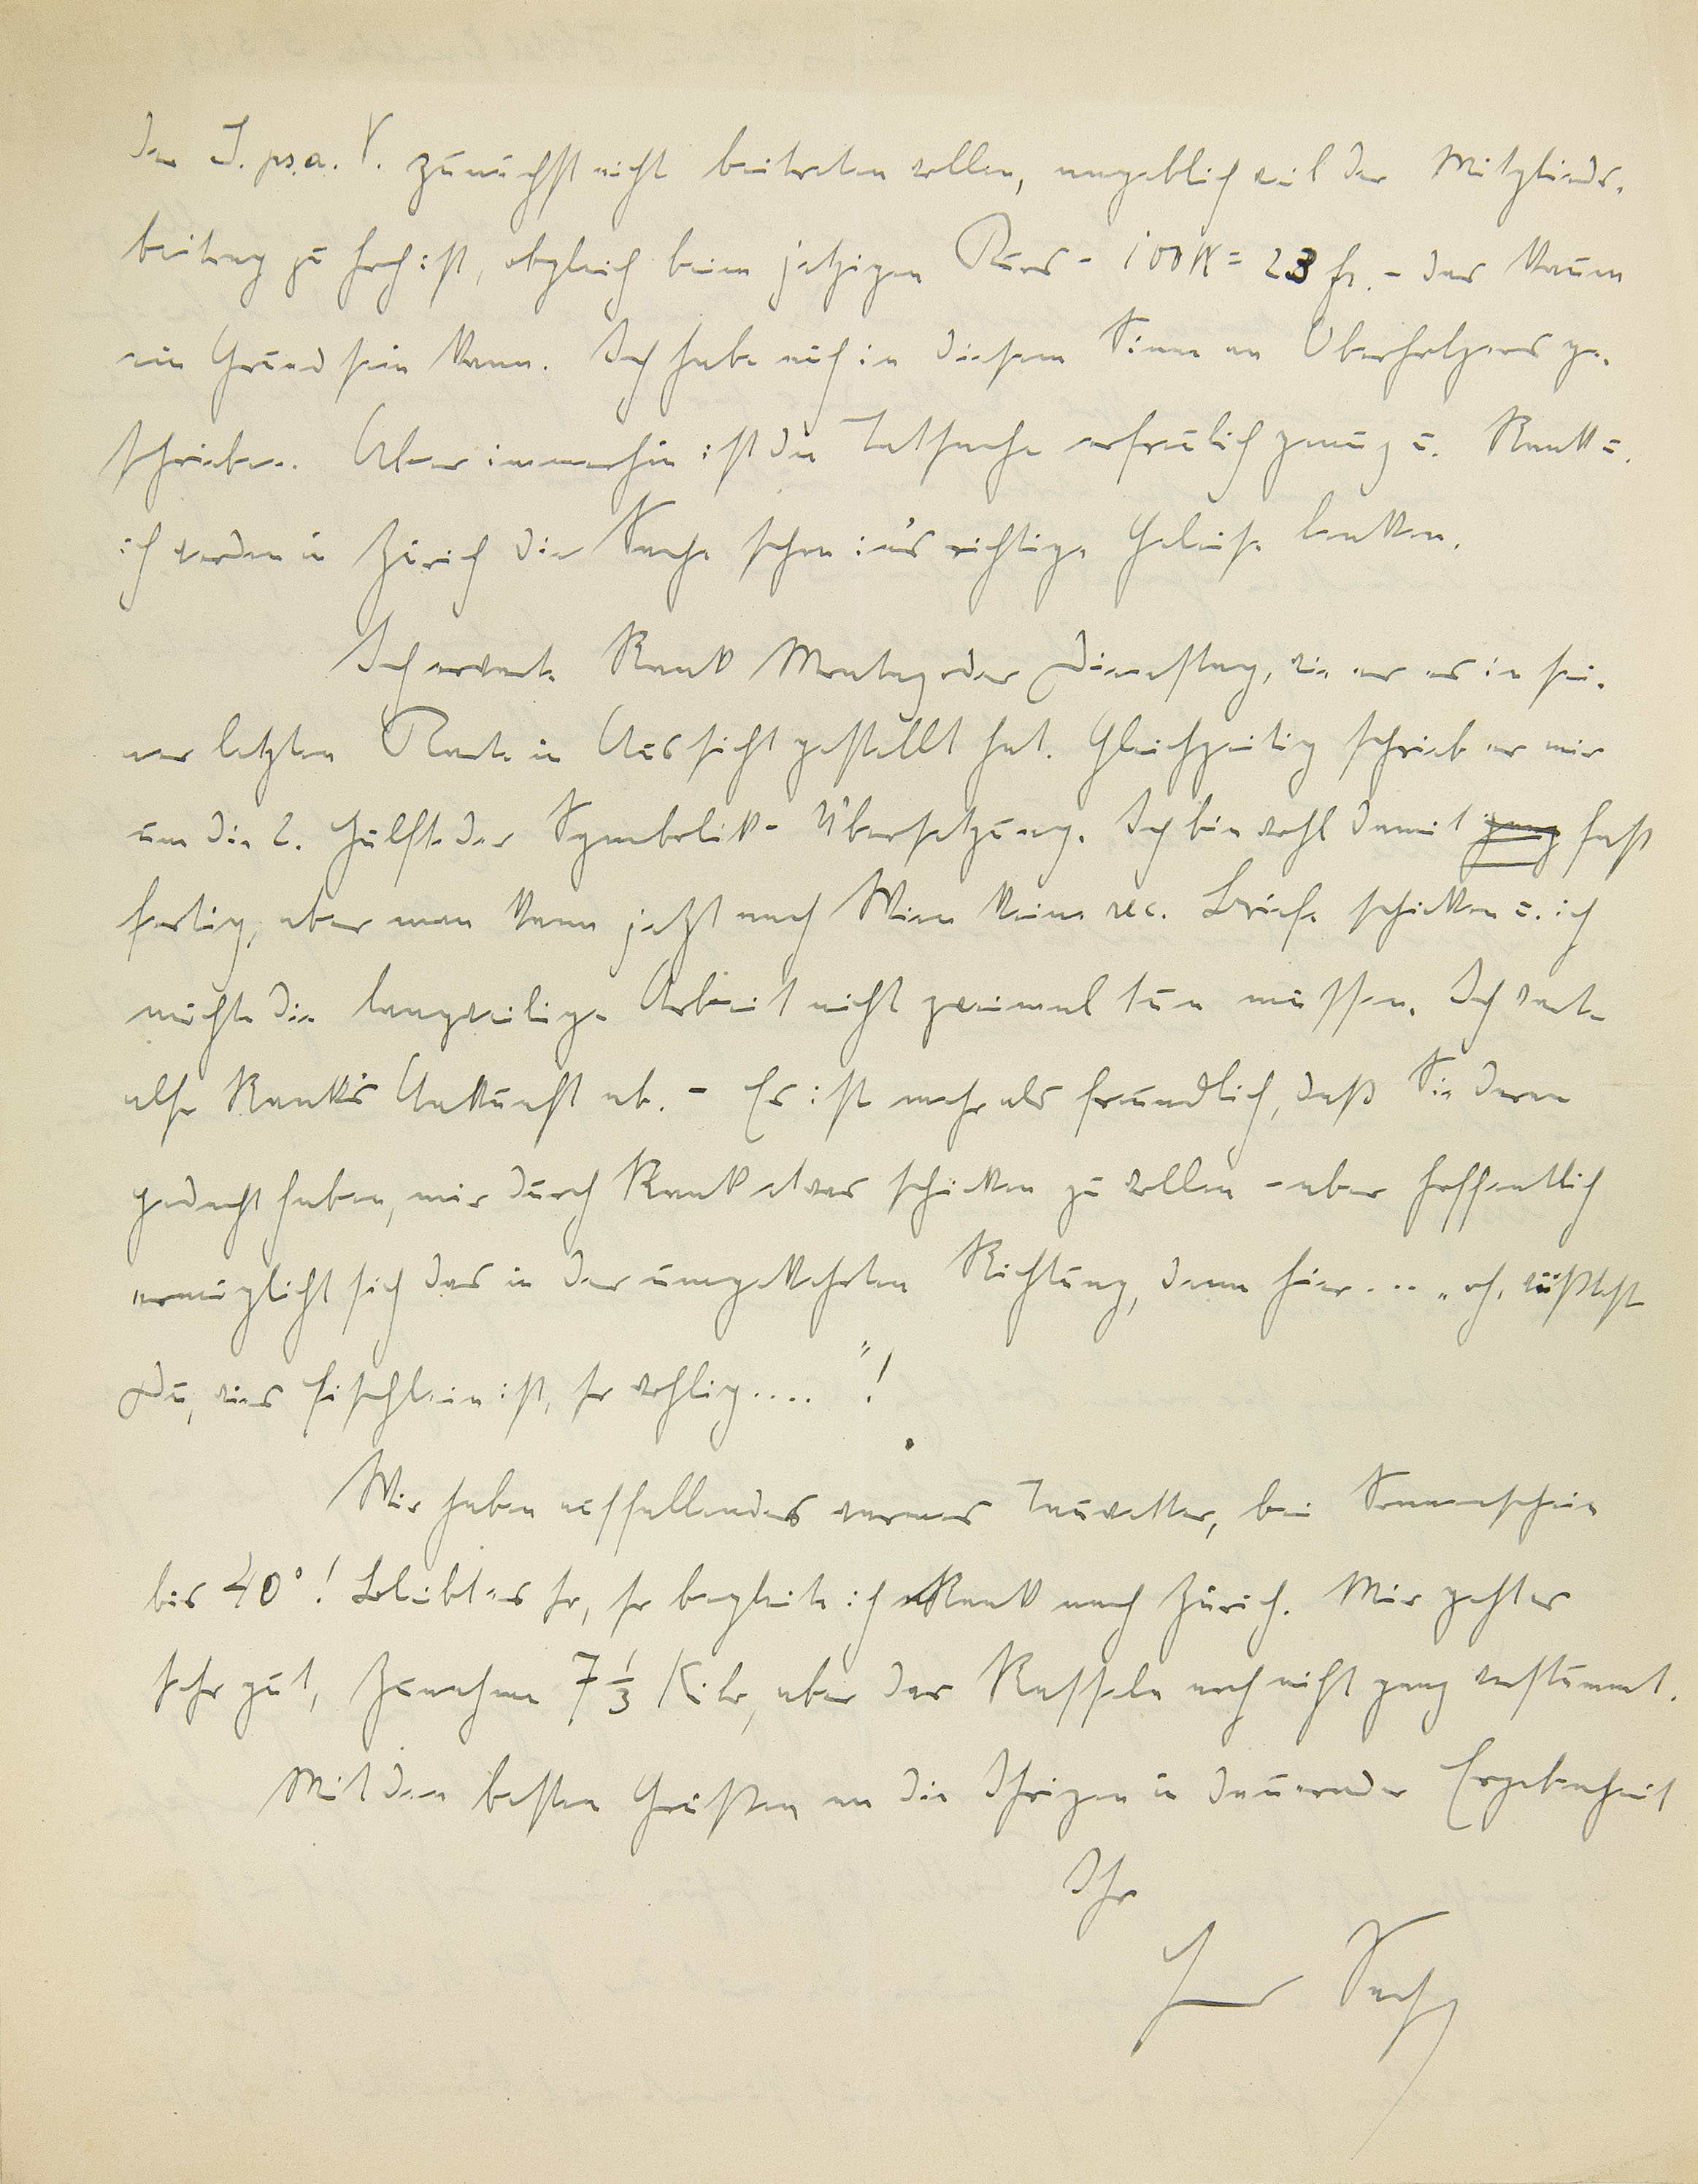 der I. ps.a. V. zunächst nicht beitreten wollen, angeblich weil der Mitglieds-
beitrag zu hoch ist, obgleich beim jetzigen Kurs - 100 K = 23 fr. - das kaum
ein Grund sein kann. Ich habe auch in diesem Sinne an Oberholzers ge-
schrieben. Aber immerhin ist die Tatsache erfreulich genug u. Rank u.
ich werden in Zürich die Sache schon in's richtige Geleise lenken.
Ich erwarte Rank Montag oder Dienstag, wie er es in sei-
ner letzten Karte in Aussicht gestellt hat. Gleichzeitig schrieb er mir
um die 2. Hälfte der Symbolik-Übersetzung. Ich bin wohl damit ganz fast
fertig, aber man kann jetzt nach Wien keine rec. Briefe schicken u. ich
möchte die langweilige Arbeit nicht zweimal tun müssen. Ich warte
also Rank's Ankunft ab. - Es ist mehr als freundlich, daß Sie daran
gedacht haben, mir durch Rank etwas schicken zu wollen - aber hoffentlich
ermöglicht sich das in der umgekehrten Richtung, denn hier ... „oh, wüßtest
Du, wies Fischlein ist, so wohlig ...." !
Wir haben auffallendes warmes Tauwetter, bei Sonnenschein
bis 40°! Bleibt es so, so begleite ich Rank nach Zürich. Mir geht es
sehr gut, Zunahme 7 1/3 Kilo, aber das Rasseln noch nicht ganz verstummt.
Mit den besten Grüßen an die Ihrigen in dauernder Ergebenheit
Ihr
Hanns Sachs